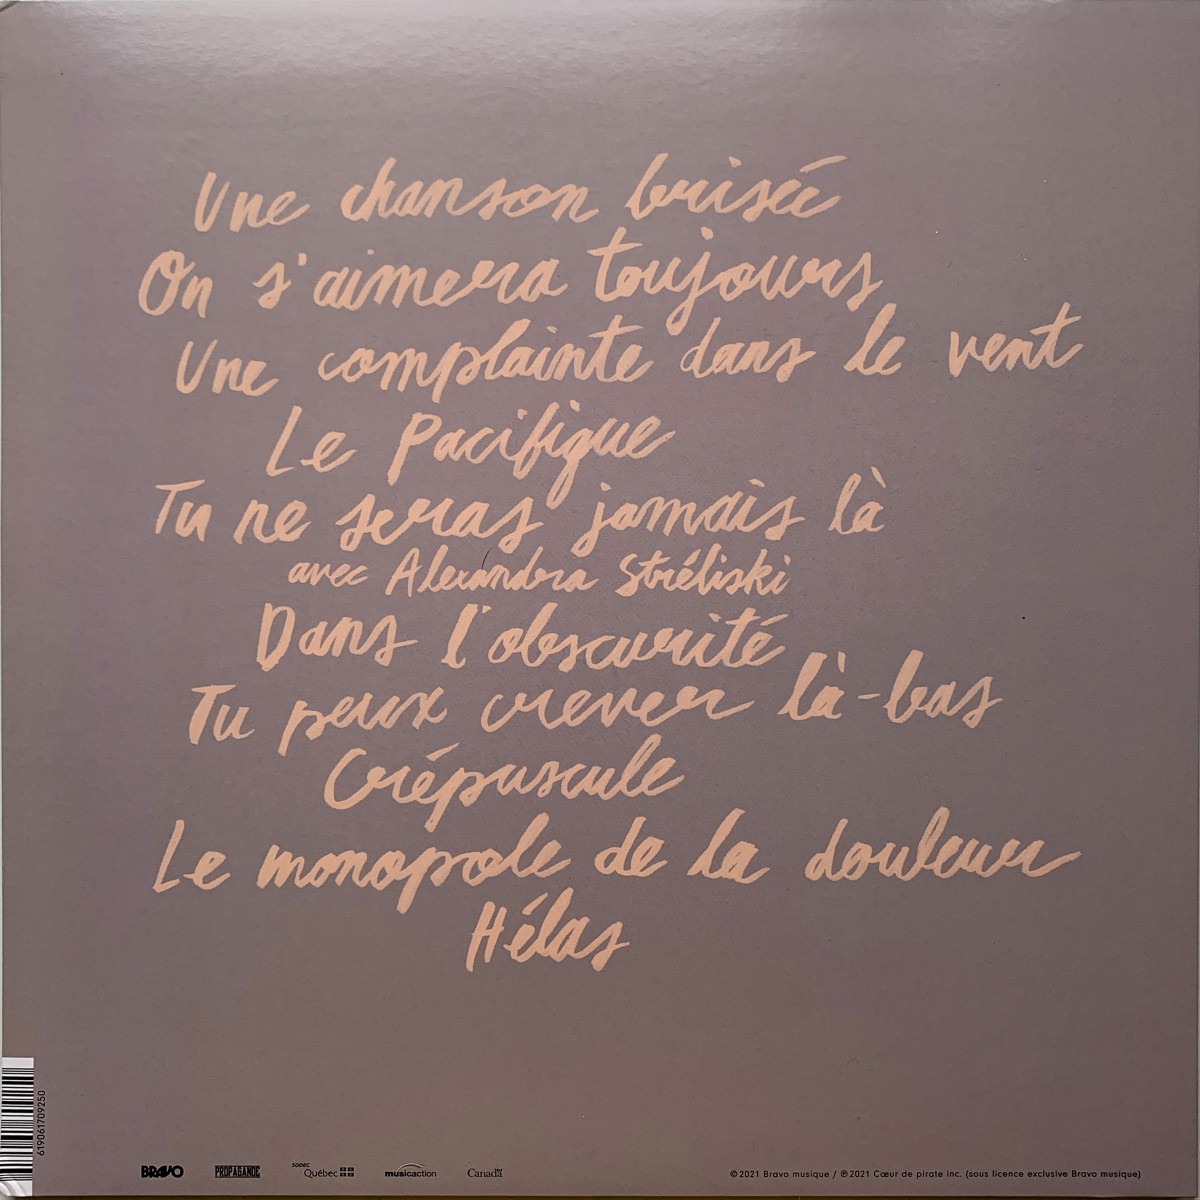 Une chanson brisée
On s'aimera toujours
Une complainte dans le vent
Le Pacifique
Tu ne seras jamais là
avec Alexandra Stréliski
Dans l'obscurité
Tu peux crever là-bas
Crépuscule
Le monopole de la douleur
Hélas
619061709250
BRAVO
PROPAGANDE
SODEC
Québec
musicaction
Canada
©2021 Bravo musique / ℗2021 Cœur de pirate inc. (sous licence exclusive Bravo musique)